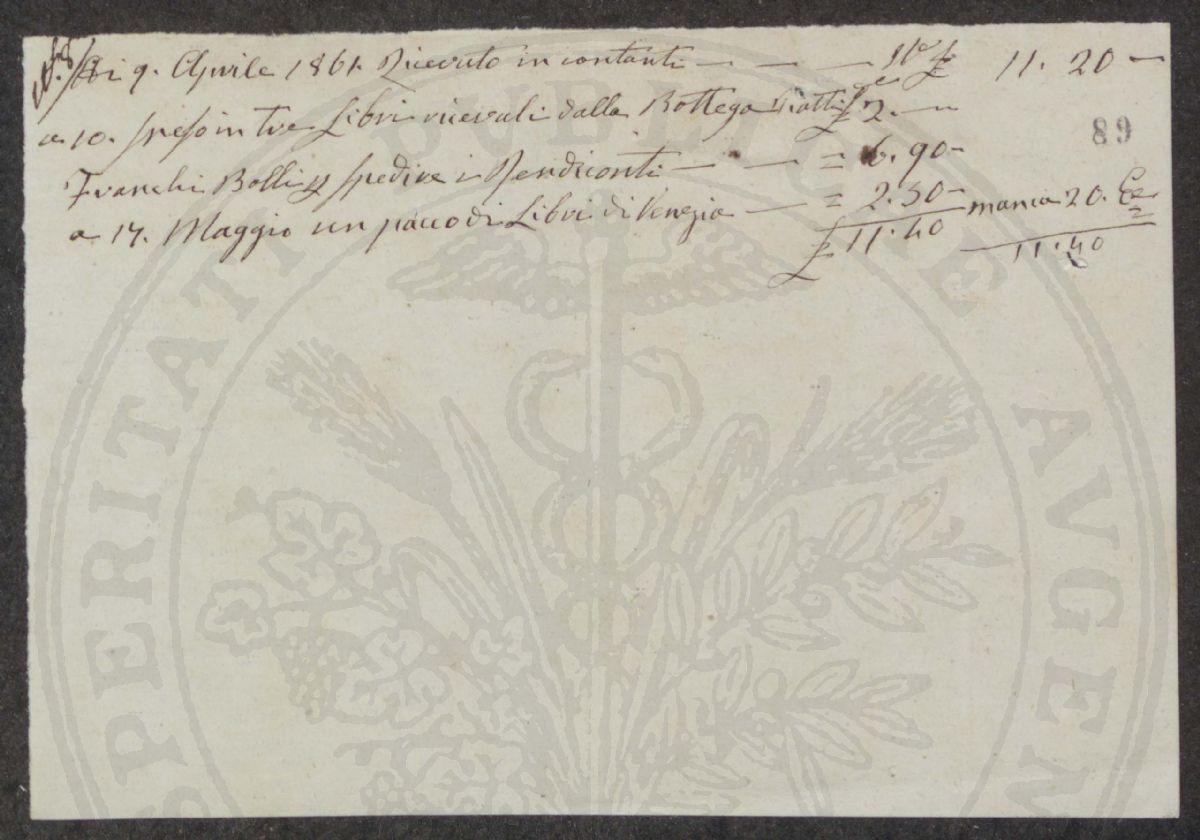 Adi 9. Aprile 1861. Ricevuto in contanti — — — £ 11. 20 —
a 10. speso in tre Libri ricevuti dalla Bottega £ 2. —
89
Franchi Bolli p spedire i Rendiconti — — = 6. 90 —
a 17. Maggio un pacco di Libri di Venezia — = 2. 50 — manca 20. Ce
£ 11. 40 11. 40
PERITATI PUBLICAE AUGEN